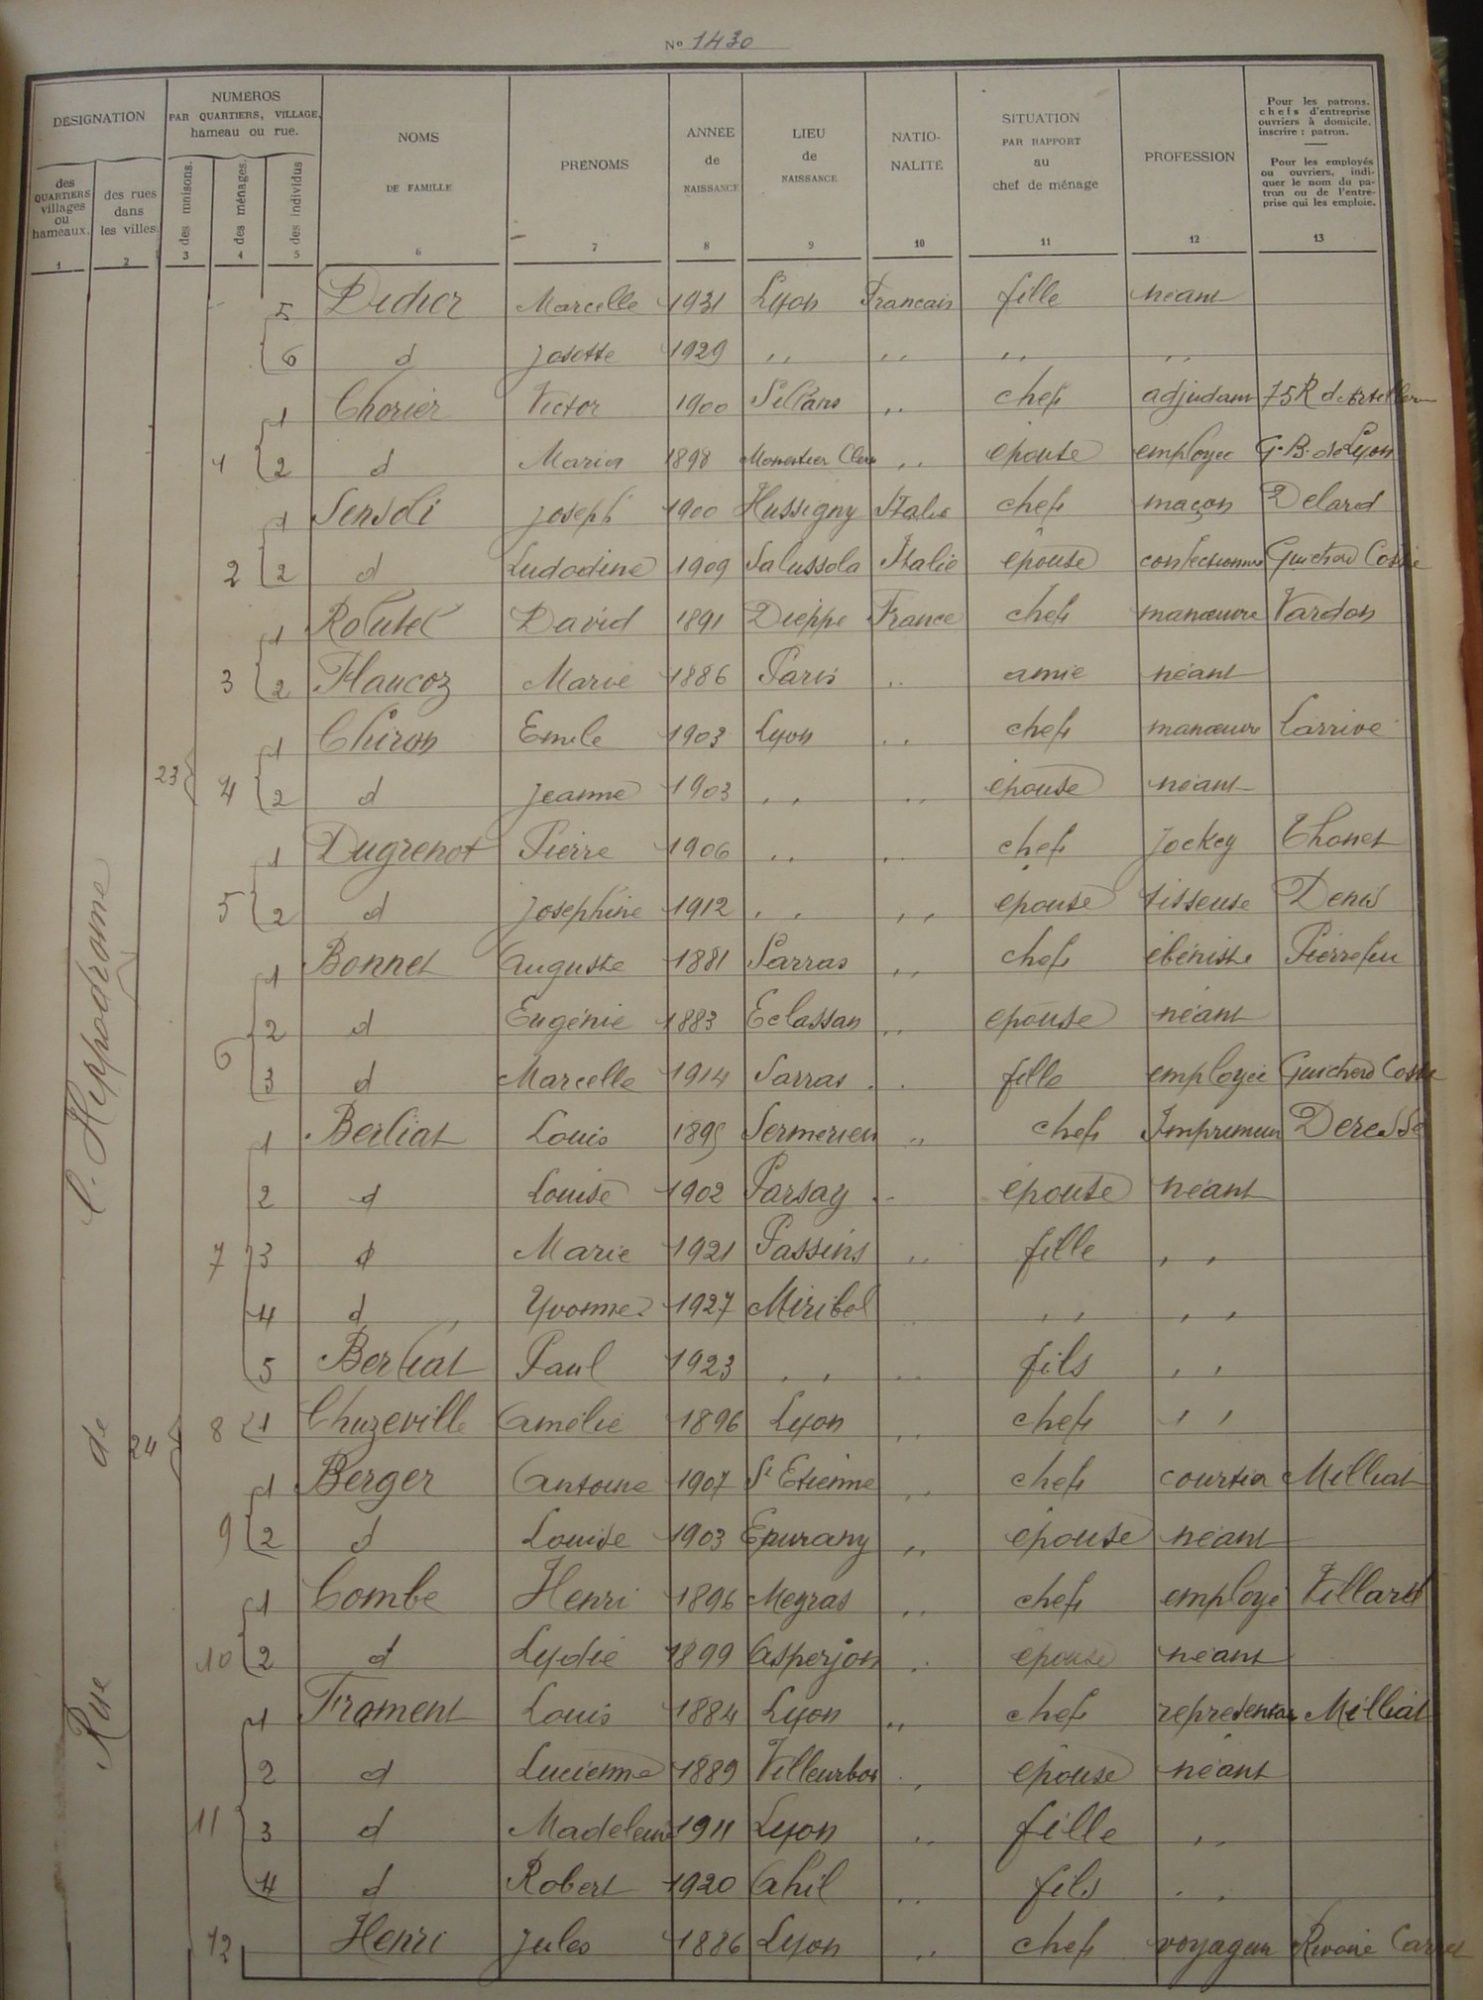 N° 1430
DÉSIGNATION
NUMÉROS
PAR QUARTIERS, VILLAGE,
hameau ou rue.
NOMS
DE FAMILLE
PRÉNOMS
ANNÉE
de
NAISSANCE
LIEU
de
NAISSANCE
NATIO-
NALITÉ
SITUATION
PAR RAPPORT
au
chef de ménage
PROFESSION
Pour les patrons,
chefs d'entreprise
ouvriers à domicile,
inscrire : patron.
Pour les employés
ou ouvriers, indi-
quer le nom du pa-
tron ou de l'entre-
prise qui les emploie.
des
QUARTIERS
villages
ou
hameaux.
des rues
dans
les villes.
des maisons.
des ménages.
des individus
1 2 3 4 5 6 7 8 9 10 11 12 13
Rue de l'Hippodrome
23
24
5 Didier Marcelle 1931 Lyon Francais fille néant
6 d Josette 1929 ,, ,, ,, ,,
1 Chorier Victor 1900 Sillans ,, chef adjudant 75 R d'Artillerie
1 2 d Maria 1898 Monestier Cler ,, épouse employée G. B. de Lyon
1 Sensoli Joseph 1900 Hussigny Italie chef maçon Delarod
2 2 d 1909 Salussola Italie épouse Guichard
1 David 1891 Dieppe France chef manœuvre Vardon
3 2 Flaucoz Marie 1886 Paris ,, amie néant
1 Chiron Emile 1903 Lyon ,, chef manœuvre Larrivé
4 2 d Jeanne 1903 ,, ,, épouse néant
1 Dugrenot Pierre 1906 ,, ,, chef Jockey Thonet
5 2 d Josephine 1912 ,, ,, épouse tisseuse Denis
1 Bonnet Auguste 1881 Sarras ,, chef ébéniste Pierrefeu
2 d Eugénie 1883 Eclassan ,, epouse néant
6 3 d Marcelle 1914 Sarras ,, fille employée Guichard
1 Berliat Louis 1895 Sermerieu ,, chef Imprimeur
2 d Louise 1902 Parsay ,, épouse néant
7 3 d Marie 1921 Passins ,, fille ,,
4 d Yvonne 1927 Miribel ,, ,,
5 Berliat Paul 1923 ,, ,, fils ,,
8 1 Chuzeville Amélie 1896 Lyon ,, chef ,,
1 Berger Antoine 1907 St Etienne ,, chef courtier Milliat
9 2 d Louise 1903 ,, épouse néant
1 Combe Henri 1896 Meyras ,, chef employé Villaret
10 2 d Lydie 1899 Asperjon ,, épouse néant
1 Froment Louis 1884 Lyon ,, chef représentan Milliat
2 d Lucienne 1889 Villeurban ,, épouse néant
11 3 d Madeleine 1911 Lyon ,, fille ,,
4 d Robert 1920 ,, fils ,,
12 Henri Jules 1886 Lyon ,, chef voyageur